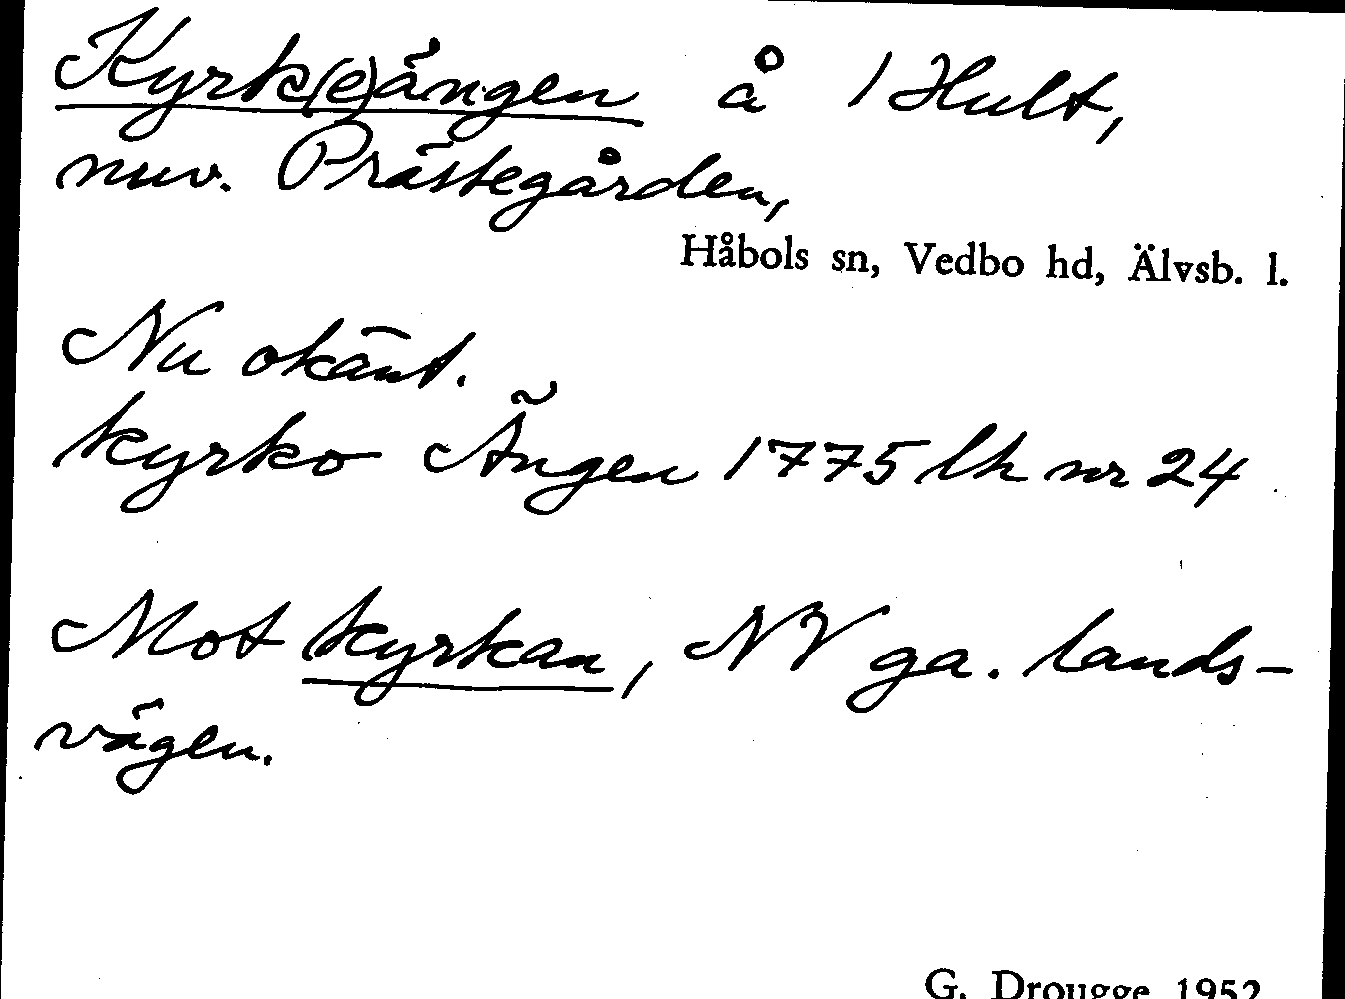 Kyrk(e)ängen å 1 Hult,
nuv. Prästegården,
Håbols sn, Vedbo hd, Älvsb. l.
Nu okänt.
kyrko Ängen 1775 lh nr 24
Mot kyrkan, NV ga. lands-
vägen.
G. Drougge 1952